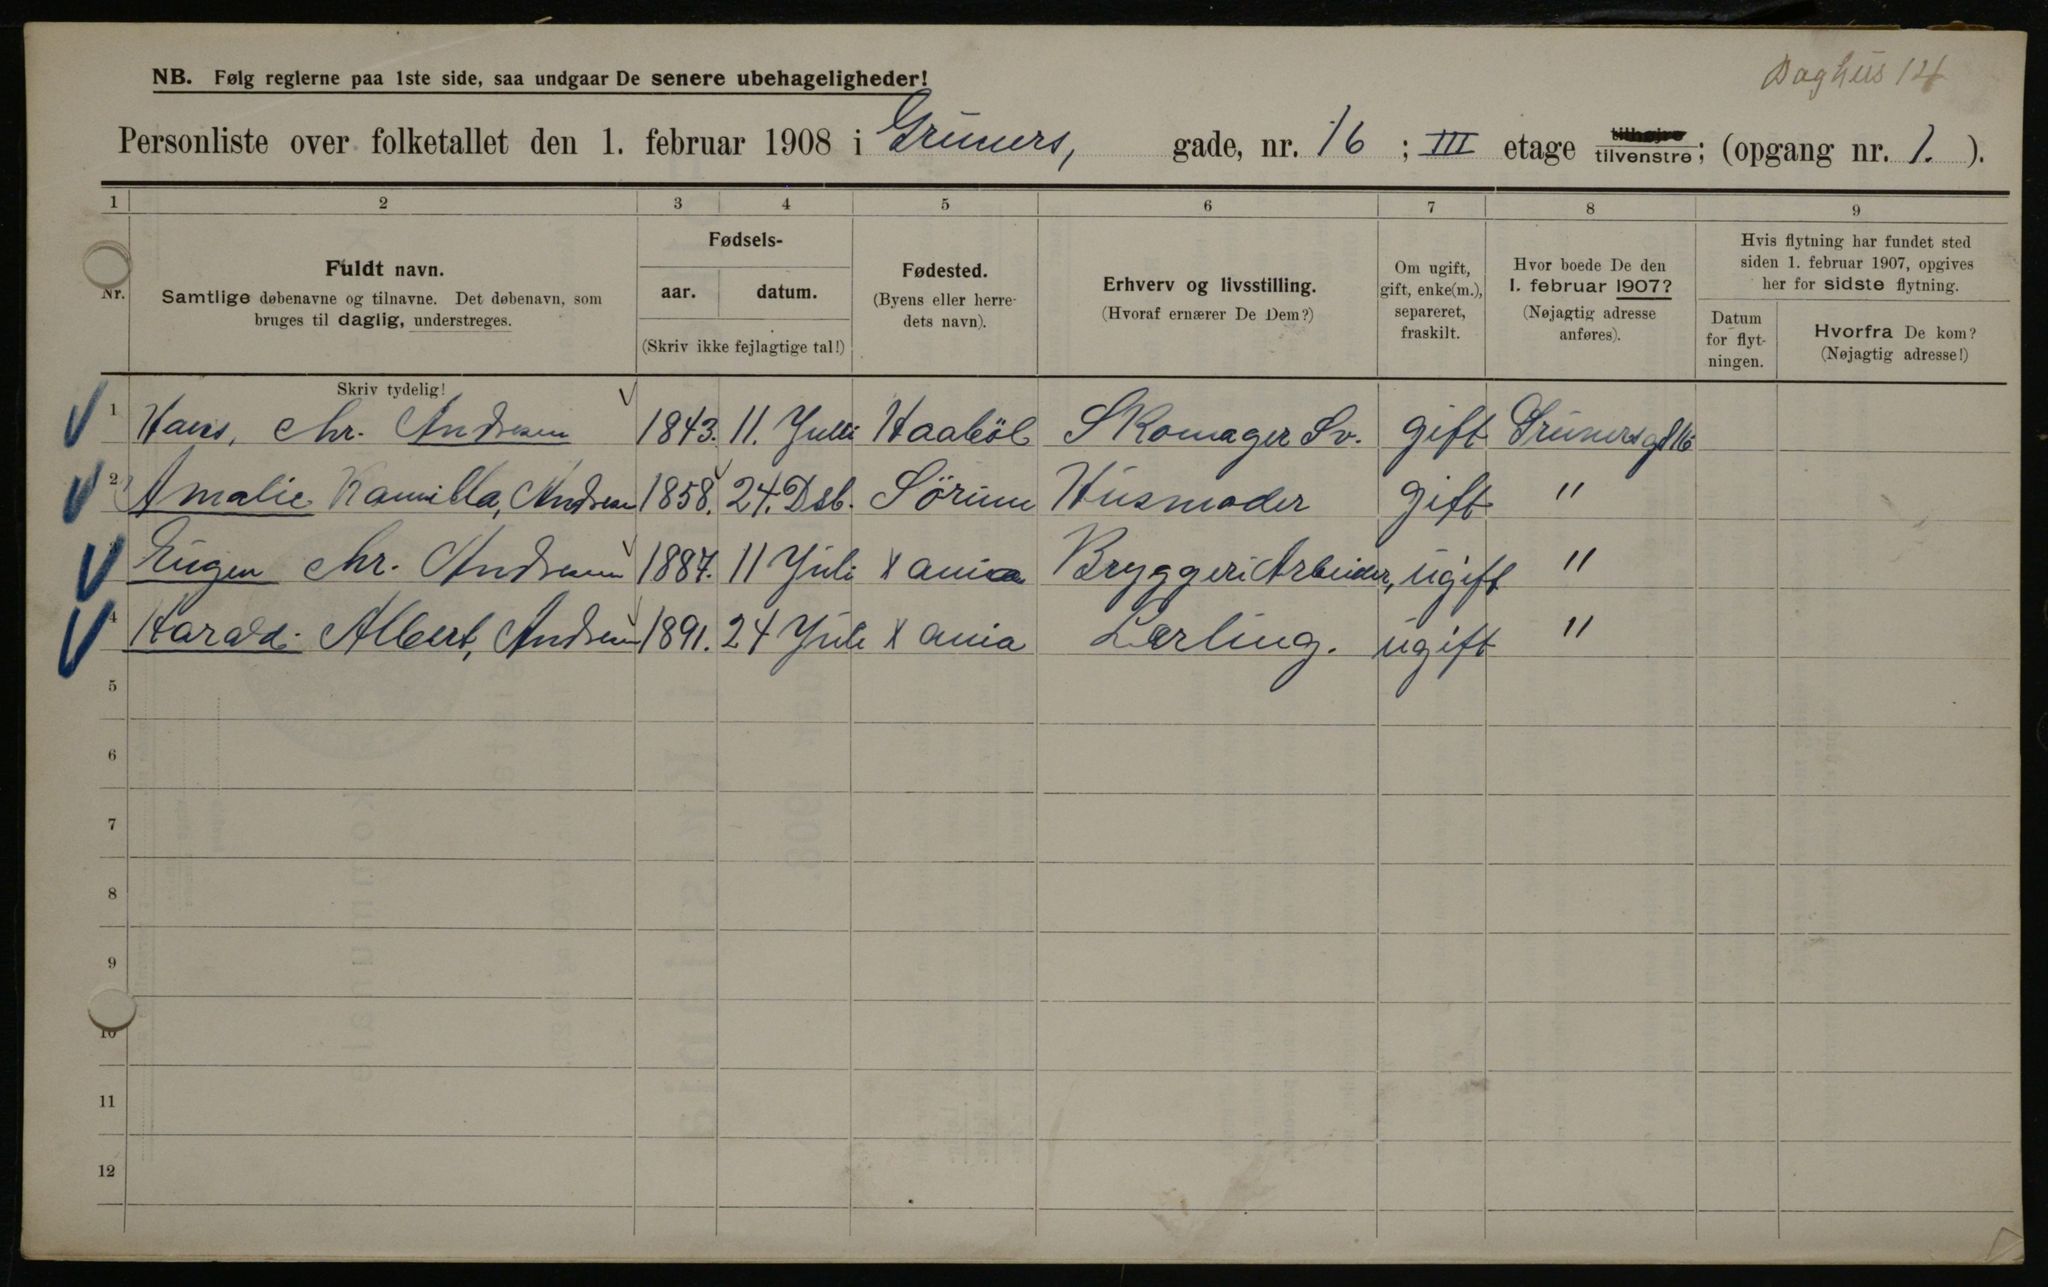 Baghus 14
NB. Følg reglerne paa 1ste side, saa undgaar De senere ubehageligheder!
Personliste over folketallet den 1. februar 1908 i Gruners, gade, nr. 16 ; III etage tilhøjre tilvenstre; (opgang nr. 1. ).
1 2 3 4 5 6 7 8 9
Nr.
Fuldt navn.
Samtlige døbenavne og tilnavne. Det døbenavn, som
bruges til daglig, understreges.
Skriv tydelig!
Fødsels-
aar. datum.
(Skriv ikke fejlagtige tal!)
Fødested.
(Byens eller herre-
dets navn).
Erhverv og livsstilling.
(Hvoraf ernærer De Dem?)
Om ugift,
gift, enke(m.),
separeret,
fraskilt.
Hvor boede De den
1. februar 1907?
(Nøjagtig adresse
anføres).
Hvis flytning har fundet sted
siden 1. februar 1907, opgives
her for sidste flytning.
Datum
for flyt-
ningen.
Hvorfra De kom?
(Nøjagtig adresse!)
1 Hans, Chr. Andresen 1843. 11. Julli Haaböl Skomager Sv. gift Grunersgd 16
2 Amalie Kamilla, Andresen 1858. 24. Dsb. Sörum Husmoder gift "
3 Eugen Chr. Andresen 1887. 11 Juli Xania Bryggeri Arbeider, ugift "
4 Harald. Albert, Andresen 1891. 24 Juli Xania Lærling. ugift "
5
6
7
8
9
10
11
12